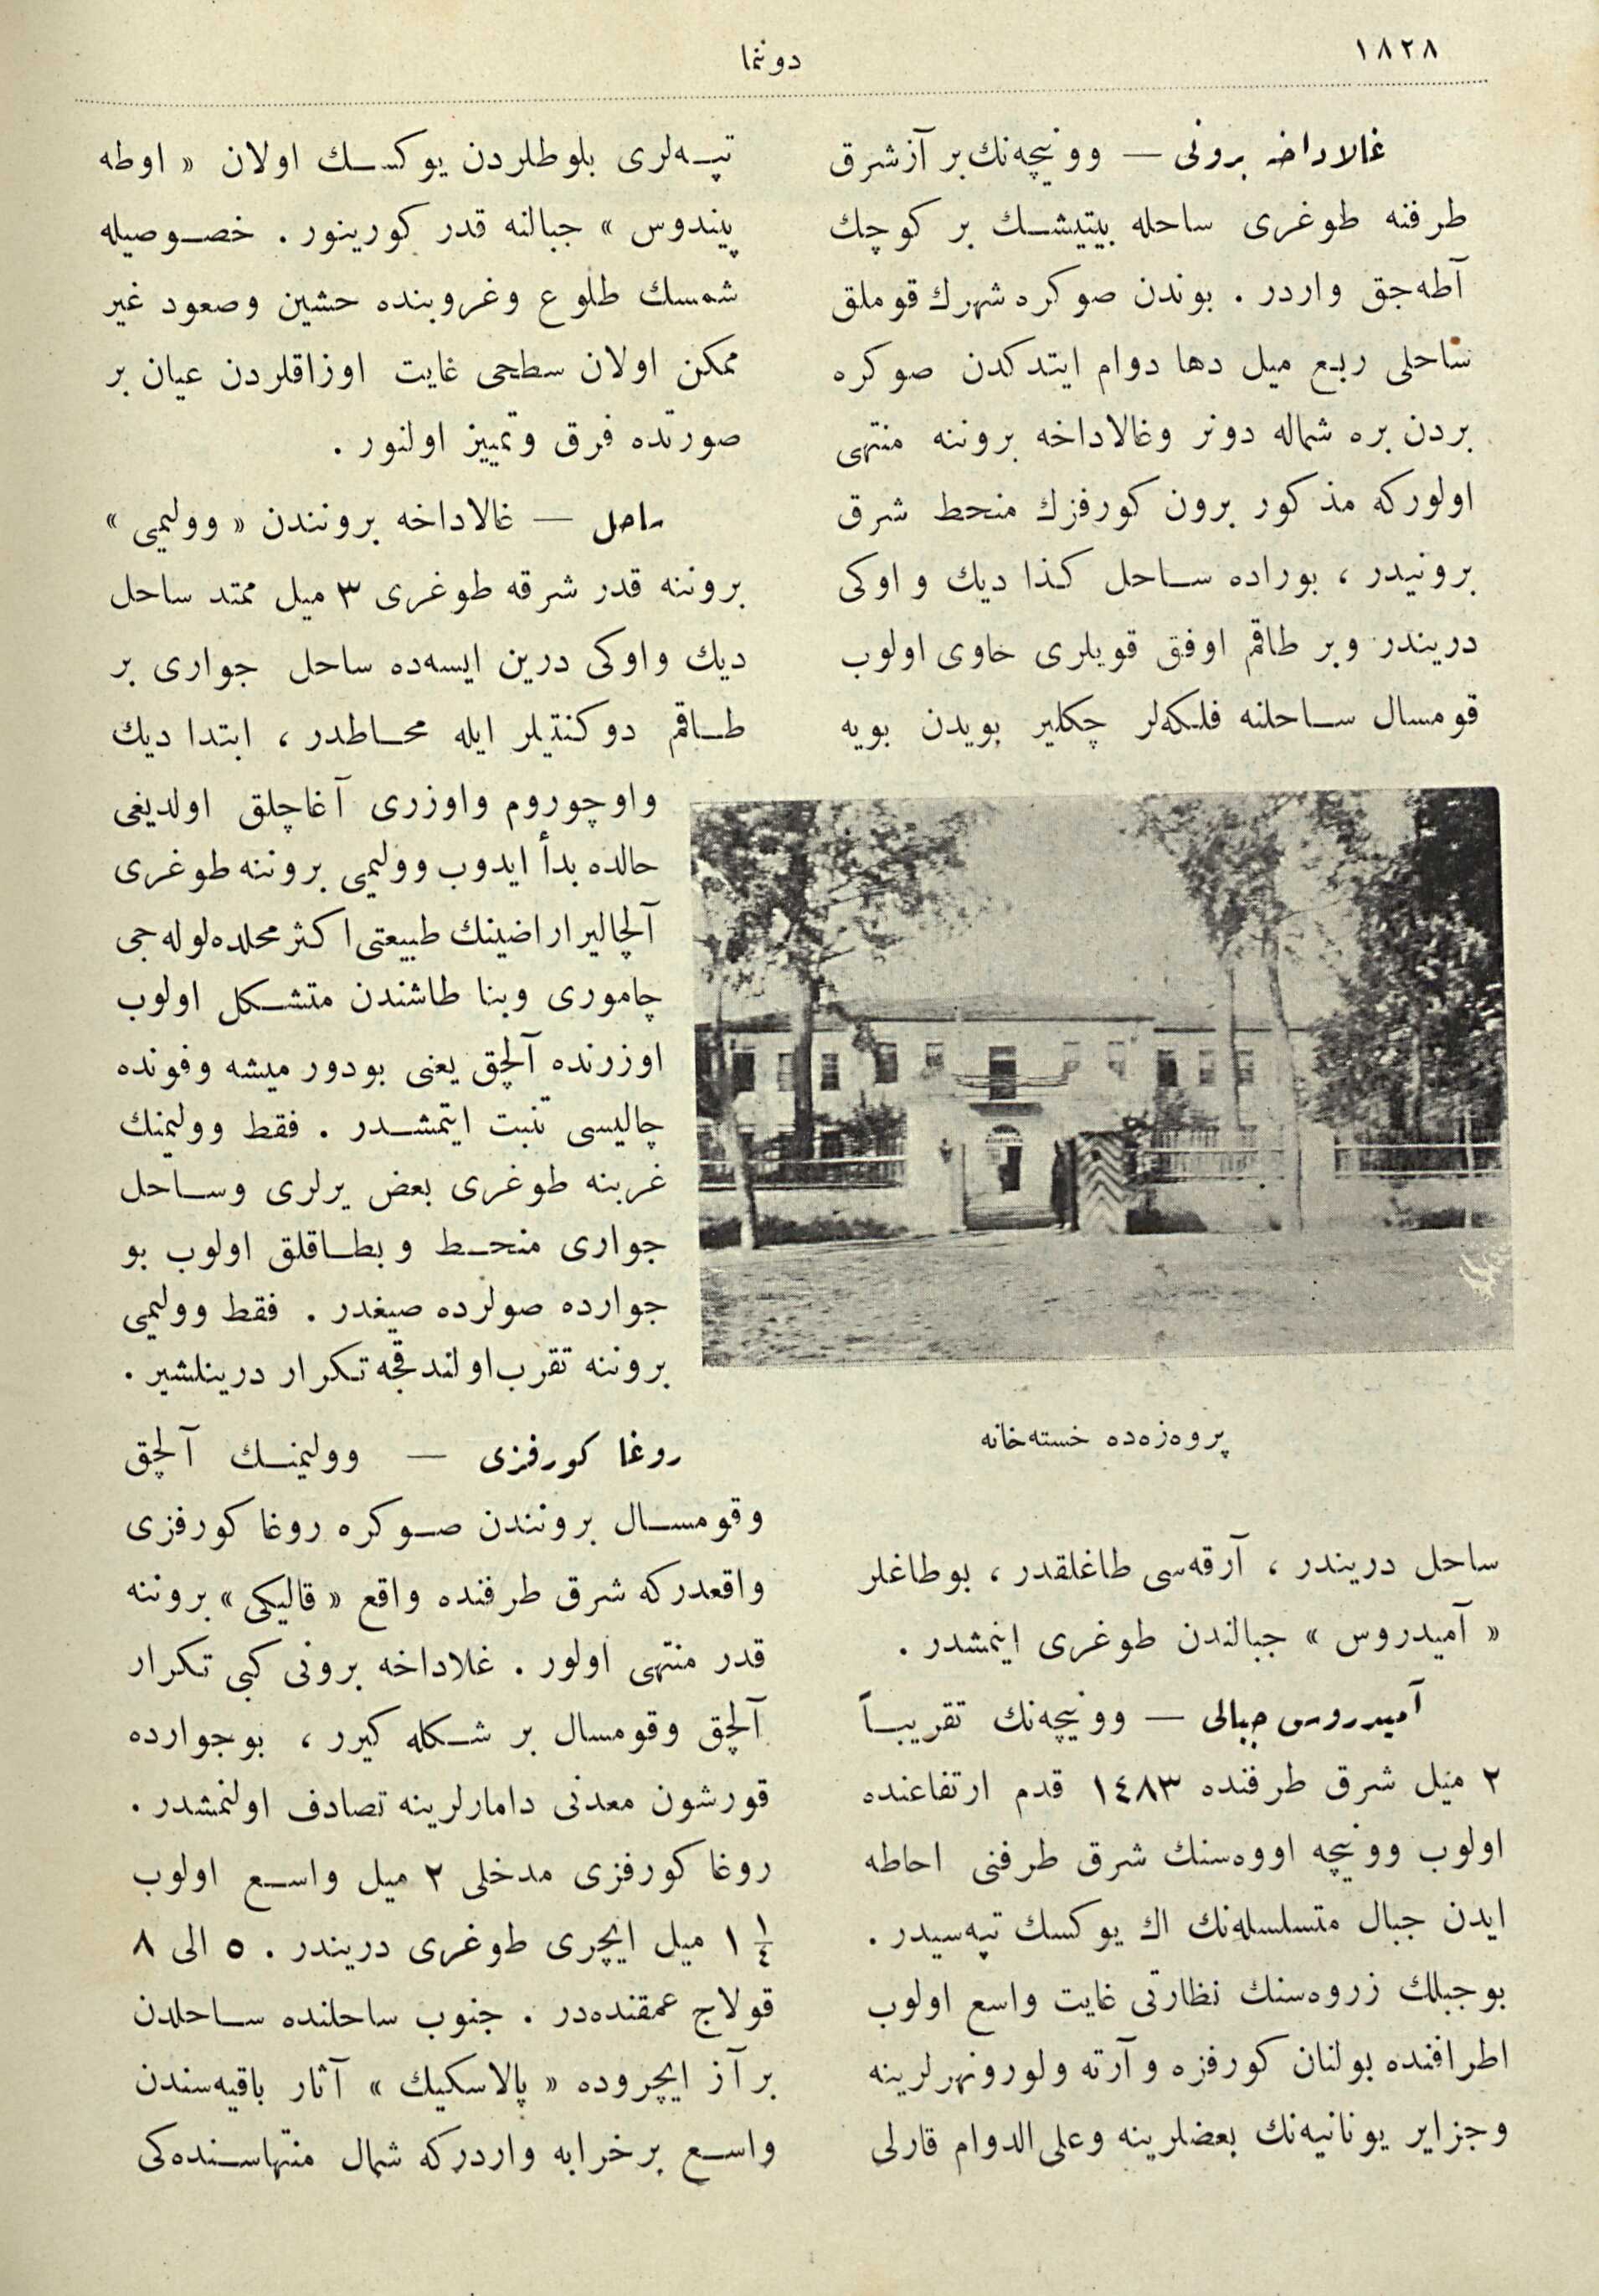 ١٨٢٨
دوننما
غالاداخه برونی — وونیچه‌نك بر آز شرق
طرفنه طوغری ساحله بیتیشــك بر كوچك
آطه‌جق واردر . بوندن صوكره شهرك قوملق
ساحلی ربع میل دها دوام ایتدكدن صوكره
بردن بره شماله دونر وغالاداخه بروننه منتهی
اولوركه مذكور برون كورفزك منحط شرق
برونیدر ، بوراده ســاحل كذا دیك و اوكی
دریندر وبر طاقم اوفق قویلری حاوی اولوب
قومسال ســاحلنه فلكه‌لر چكلیر بویدن بویه
پروه‌زه‌ده خسته‌خانه
ساحل دریندر ، آرقه‌سی طاغلقدر ، بوطاغلر
« آمیدروس » جبالندن طوغری اینمشدر .
آمیدروس جبالی — وونیچه‌نك تقریبــاً
٢ میل شرق طرفنده ١٤٨٣ قدم ارتفاعنده
اولوب وونیچه اووه‌سنك شرق طرفنی احاطه
ایدن جبال متسلسله‌نك اك یوكسك تپه‌سیدر .
بوجبلك زروه‌سنك نظارتی غایت واسع اولوب
اطرافنده بولنان كورفزه و آرته ولورونهرلرینه
وجزایر یونانیه‌نك بعضلرینه وعلی الدوام قارلی
تپــه‌لری بلوطلردن یوكســك اولان « اوطه
پیندوس » جبالنه قدر كورینور . خصــوصیله
شمسك طلوع وغروبنده حشین وصعود غیر
ممكن اولان سطحی غایت اوزاقلردن عیان بر
صورتده فرق وتمییز اولنور .
ساحل — غالاداخه بروننندن « وولیمی »
بروننه قدر شرقه طوغری ٣ میل ممتد ساحل
دیك واوكی درین ایسه‌ده ساحل جواری بر
طــاقم دوكنتیلر ایله محــاطدر ، ابتدا دیك
واوچوروم واوزری آغاچلق اولدیغی
حالده بدأ ایدوب وولیمی بروننه طوغری
آلچالیر اراضینك طبیعتی اكثر محلده لوله‌جی
چاموری وبنا طاشندن متشــكل اولوب
اوزرنده آلچق یعنی بودور میشه وفونده
چالیسی تنبت ایتمشــدر . فقط وولیمینك
غربنه طوغری بعض یرلری وســاحل
جواری منحــط و بطــاقلق اولوب بو
جوارده صولرده صیغدر . فقط وولیمی
بروننه تقرب اولندقجه تكرار درینلشیر .
روغا كورفزی — وولیمینــك آلچق
وقومســال بروننندن صــوكره روغا كورفزی
واقعدركه شرق طرفنده واقع « قالیكی » بروننه
قدر منتهی اولور . غلاداخه برونی كبی تكرار
آلچق وقومسال بر شــكله كیرر ، بوجوارده
قورشون معدنی دامارلرینه تصادف اولنمشدر .
روغا كورفزی مدخلی ٢ میل واســع اولوب
١ ١/٤ میل ایچری طوغری دریندر . ٥ الی ٨
قولاج عمقنده‌در . جنوب ساحلنده ســاحلدن
بر آز ایچروده « پالاسكیك » آثار باقیه‌سندن
واســع بر خرابه واردركه شمال منتهاســنده‌كی